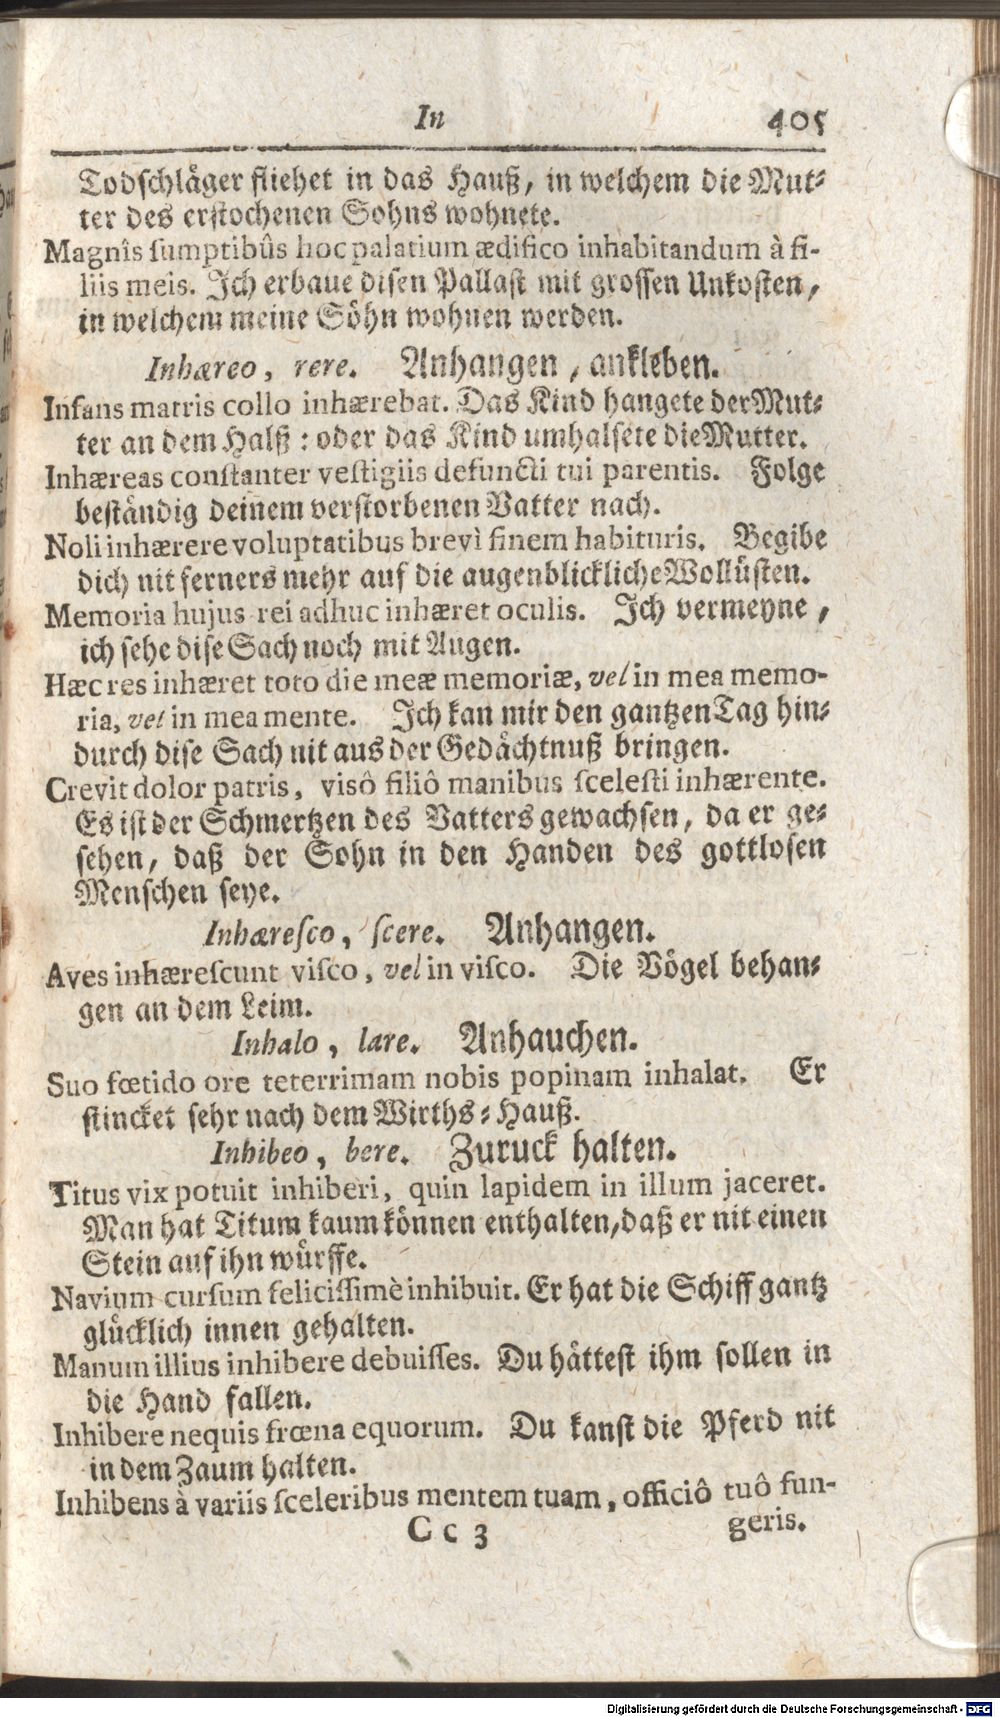 In 405
Todschläger fliehet in das Hauß, in welchem die Mut-
ter des erstochenen Sohns wohnete.
Magnîs sumptibûs hoc palatium ædifico inhabitandum à fi-
liis meis. Ich erbaue disen Pallast mit grossen Unkosten,
in welchem meine Söhn wohnen werden.
Inhæreo, rere. Anhangen, ankleben.
Infans matris collo inhærebat. Das Kind hangete der Mut-
ter an dem Halß: oder das Kind umhalsete die Mutter.
Inhæreas constanter vestigiis defuncti tui parentis. Folge
beständig deinem verstorbenen Vatter nach.
Noli inhærere voluptatibus brevì finem habituris. Begibe
dich nit ferners mehr auf die augenblickliche Wollüsten.
Memoria hujus rei adhuc inhæret oculis. Ich vermeyne,
ich sehe dise Sach noch mit Augen.
Hæc res inhæret toto die meæ memoriæ, vel in mea memo-
ria, vel in mea mente. Ich kan mir den gantzen Tag hin-
durch dise Sach nit aus der Gedächtnuß bringen.
Crevit dolor patris, visô filiô manibus scelesti inhærente.
Es ist der Schmertzen des Vatters gewachsen, da er ge-
sehen, daß der Sohn in den Handen des gottlosen
Menschen seye.
Inhæresco, scere. Anhangen.
Aves inhærescunt visco, vel in visco. Die Vögel behan-
gen an dem Leim.
Inhalo, lare. Anhauchen.
Suo fœtido ore teterrimam nobis popinam inhalat. Er
stincket sehr nach dem Wirths-Hauß.
Inhibeo, bere. Zuruck halten.
Titus vix potuit inhiberi, quin lapidem in illum jaceret.
Man hat Titum kaum können enthalten, daß er nit einen
Stein auf ihn würffe.
Navium cursum felicissimè inhibuit. Er hat die Schiff gantz
glücklich innen gehalten.
Manum illius inhibere debuisses. Du hättest ihm sollen in
die Hand fallen.
Inhibere nequis frœna equorum. Du kanst die Pferd nit
in dem Zaum halten.
Inhibens à variis sceleribus mentem tuam, officiô tuô fun-
Cc 3 geris.
Digitalisierung gefördert durch die Deutsche Forschungsgemeinschaft - DFG